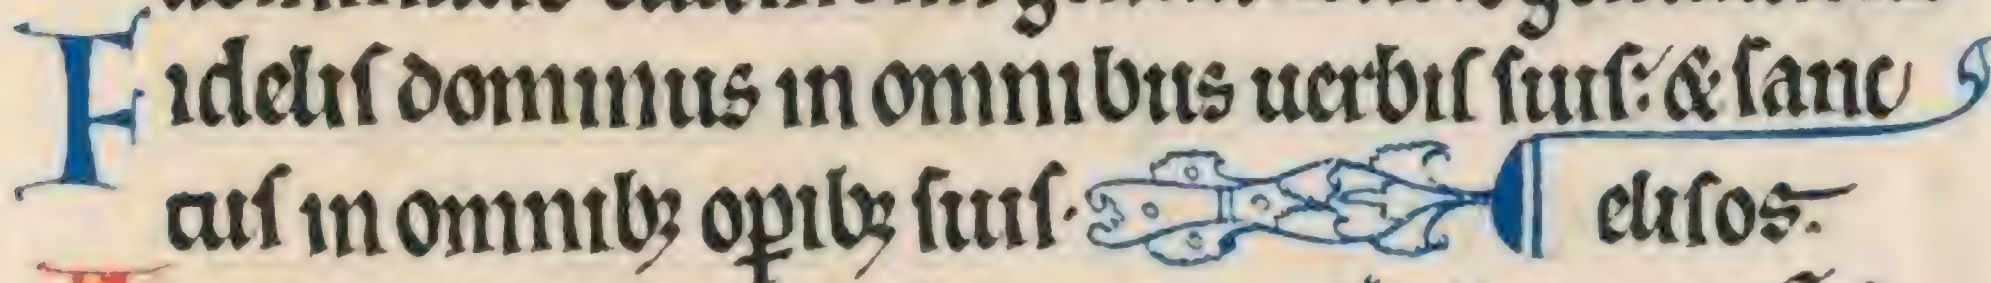 Fidelis dominus in omnibus uerbis suis: & sanc
tus in omnibꝫ oꝑibꝫ suis. elisos.